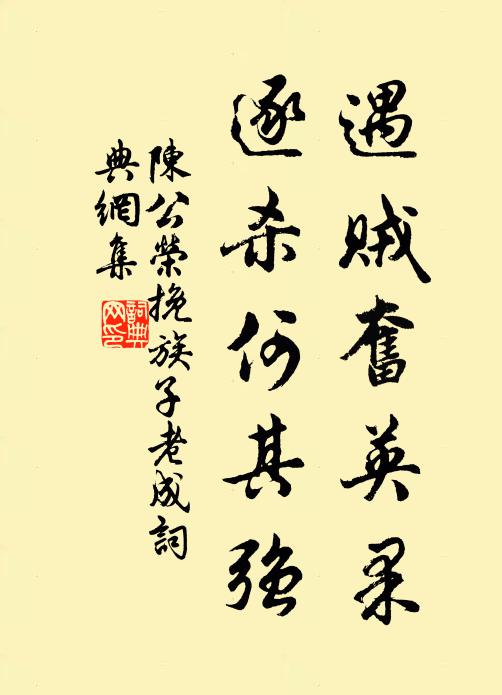 遇賊奮英果
逐杀何其強
陳公榮挽族子老成詞
典網集
詞典
网印